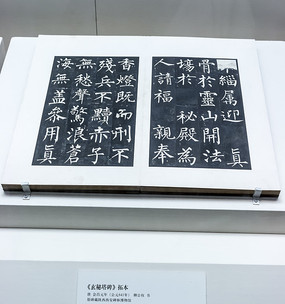 緇属迎眞
骨於靈山開法
塲於秘殿為
人請福親奉
香燈既而刑不
殘兵不黷赤子
無愁聲驚浪蒼
海無盖叅用眞
《玄秘塔碑》拓本
唐 会昌元年（公元841年） 柳公权 书